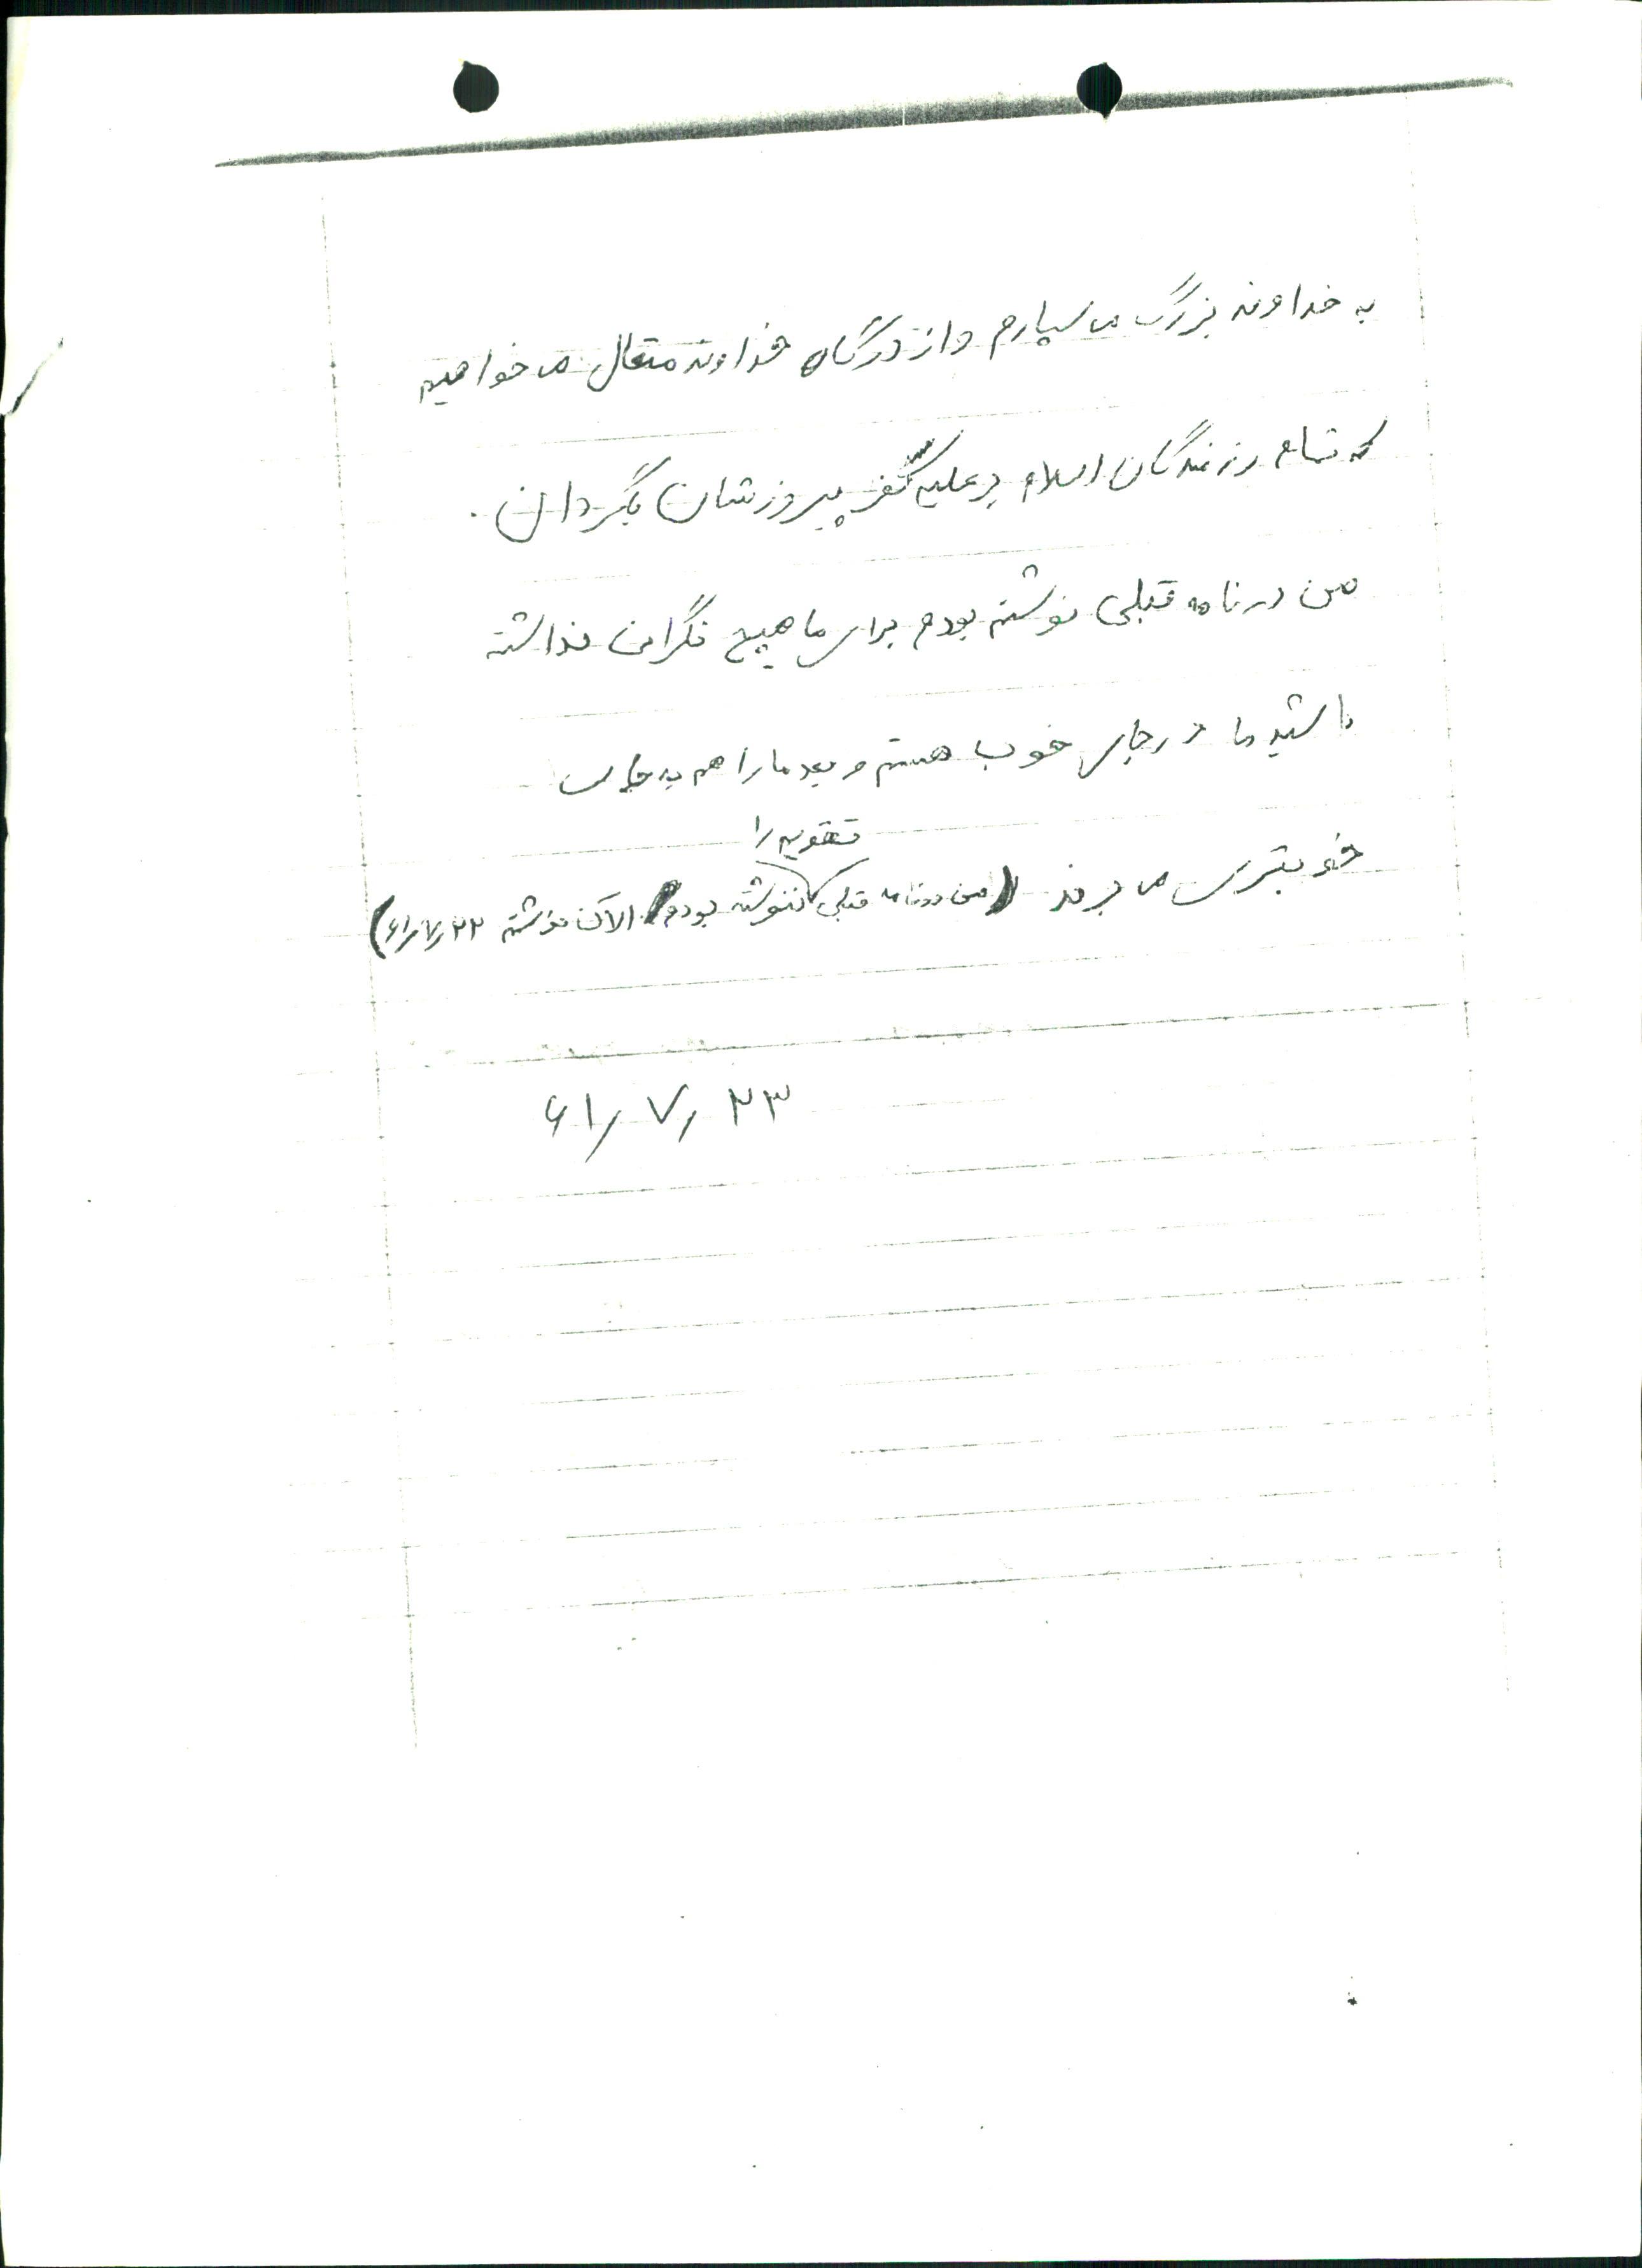 به خداوند بزرگ می سپارم و از درگاه خداوند متعال می خواهیم
که تمام رزمندگان اسلام بر علیه کفر پیروزشان بگردان .
من در نامه قبلی نوشتم بودم برای ما هیچ نگرانی نداشته
باشید ما در جای خوب هستم و بعد ما را هم به جای
خوبتری می برند (من در نامه قبلی تقویم را ننوشته بودم الآن نوشتم ۲۳ ر ۷ ر ۶۱)
۲۳ ر ۷ ر ۶۱